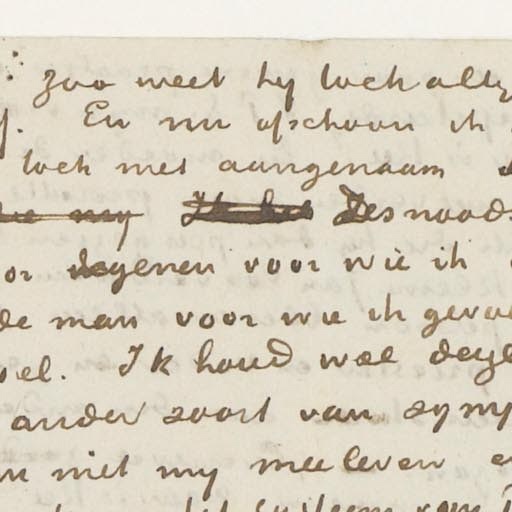 zoo weet hy toch alty
En nu ofschoon ik
toch niet aangenaam
my Desnoods
or degenen voor wie ik
de man voor wie ik gevoe
oel. Ik houd wel dege
ander soort van symp
niet my meeleven e